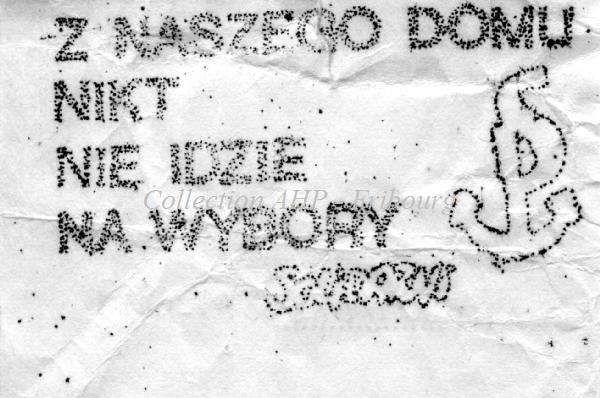 Z NASZEGO DOMU
NIKT
NIE IDZIE
NA WYBORY
Collection AHP - Fribourg